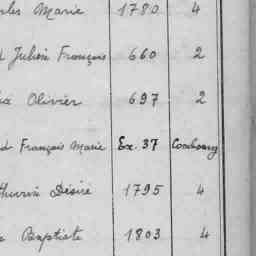 Marie 1780 4
Julien François 660 2
Olivier 697 2
François Marie Ex. 37 Combourg
Désiré 1795 4
Baptiste 1803 4